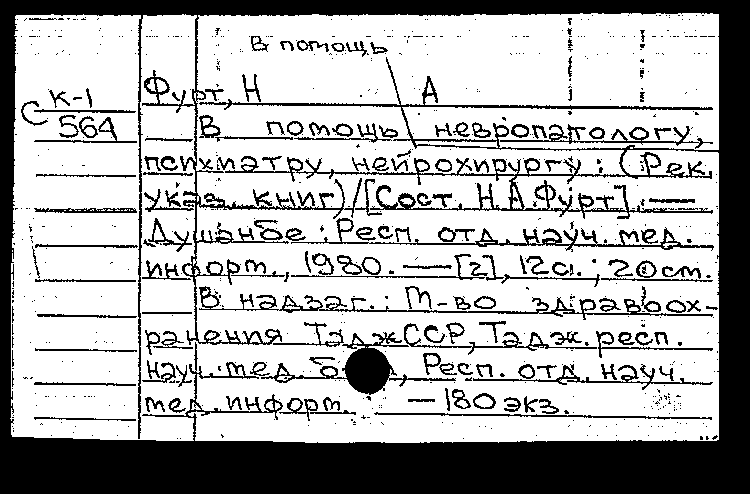 В помощь
К-1
С 564
Фурт, Н А
В помощь невропатологу,
психиатру, нейрохирургу: (Рек.
указ. книг)/[Сост. Н.А.Фурт]. —
Душанбе: Респ. отд. науч. мед.
информ., 1980. — [2], 12с.; 20см.
В надзаг.: М-во здравоох-
ранения ТаджССР, Тадж. респ.
науч. мед. , Респ. отд. науч.
мед. информ. — 180 экз.